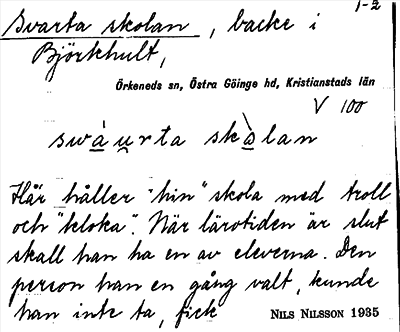 1-2
Svarta skolan, backe i
Björkhult,
Örkeneds sn, Östra Göinge hd, Kristianstads län
V 100
swáu̯rta skòlan
Här håller "hin" skola med troll
och "kloka". När lärotiden är slut
skall han ha en av eleverna. Den
person han en gång valt, kunde
han inte ta, fick
NILS NILSSON 1935